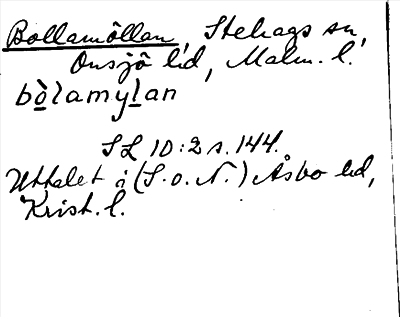 Bollamöllan, Stehags sn,
Onsjö hd, Malm. l.
bòlamylan
SL 10:2 s. 144.
Uttalet i (S. o. N.) Åsbo hd,
Krist. l.